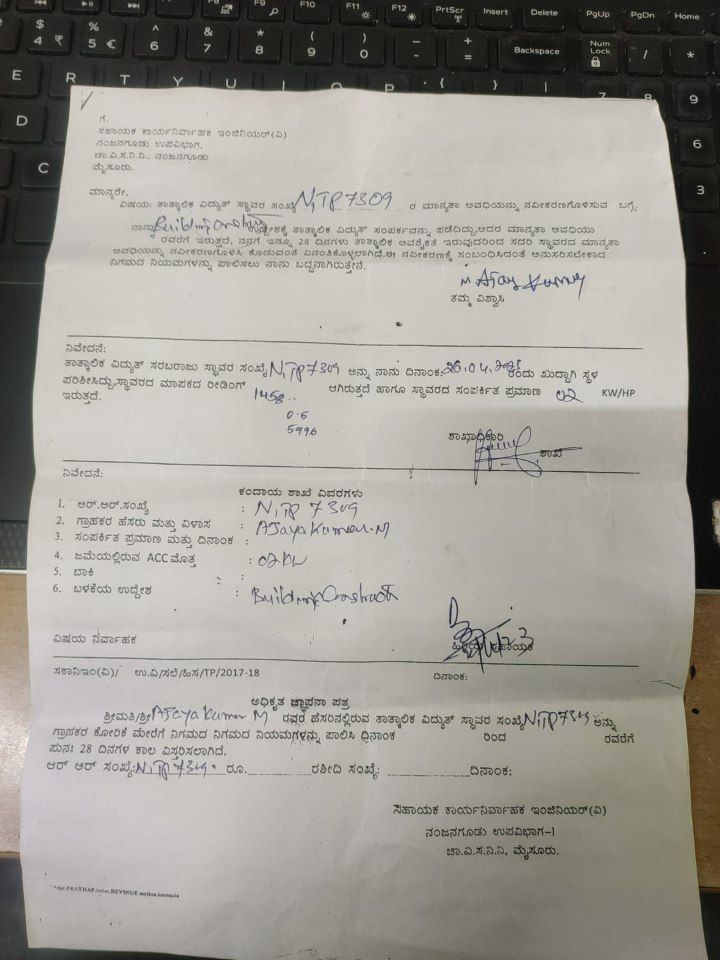 ಗೆ,
ಸಹಾಯಕ ಕಾರ್ಯನಿರ್ವಾಹಕ ಇಂಜಿನಿಯರ್(ವಿ)
ನಂಜನಗೂಡು ಉಪವಿಭಾಗ,
ಚಾ.ವಿ.ಸ.ನಿ.ನಿ., ನಂಜನಗೂಡು
ಮೈಸೂರು.
ಮಾನ್ಯರೇ,
ವಿಷಯ: ತಾತ್ಕಾಲಿಕ ವಿದ್ಯುತ್ ಸ್ಥಾವರ ಸಂಖ್ಯೆ NjTP 7309 ರ ಮಾನ್ಯತಾ ಅವಧಿಯನ್ನು ನವೀಕರಣಗೊಳಿಸುವ ಬಗ್ಗೆ.
ನಾನು Building ಉದ್ದೇಶಕ್ಕೆ ತಾತ್ಕಾಲಿಕ ವಿದ್ಯುತ್ ಸಂಪರ್ಕವನ್ನು ಪಡೆದಿದ್ದು,ಅದರ ಮಾನ್ಯತಾ ಅವಧಿಯು
ರವರೆಗೆ ಇರುತ್ತದೆ. ನನಗೆ ಇನ್ನೂ 28 ದಿನಗಳು ತಾತ್ಕಾಲಿಕ ಅವಶ್ಯಕತೆ ಇರುವುದರಿಂದ ಸದರಿ ಸ್ಥಾವರದ ಮಾನ್ಯತಾ
ಅವಧಿಯನ್ನು ನವೀಕರಣಗೊಳಿಸಿ ಕೊಡುವಂತೆ ವಿನಂತಿಕೊಳ್ಳಲಾಗಿದೆ.ಈ ನವೀಕರಣಕ್ಕೆ ಸಂಬಂಧಿಸಿದಂತೆ ಅನುಸರಿಸಬೇಕಾದ
ನಿಗಮದ ನಿಯಮಗಳನ್ನು ಪಾಲಿಸಲು ನಾನು ಬದ್ದನಾಗಿರುತ್ತೇನೆ.
M. Ajay Kumar
ತಮ್ಮ ವಿಶ್ವಾಸಿ
ನಿವೇದನೆ:
ತಾತ್ಕಾಲಿಕ ವಿದ್ಯುತ್ ಸರಬರಾಜು ಸ್ಥಾವರ ಸಂಖ್ಯೆ NjTP 7309 ಅನ್ನು ನಾನು ದಿನಾಂಕ: ರಂದು ಖುದ್ದಾಗಿ ಸ್ಥಳ
ಪರಿಶೀಸಿದ್ದು,ಸ್ಥಾವರದ ಮಾಪಕದ ರೀಡಿಂಗ್ 1458 ಆಗಿರುತ್ತದೆ ಹಾಗೂ ಸ್ಥಾವರದ ಸಂಪರ್ಕಿತ ಪ್ರಮಾಣ 02 KW/HP
ಇರುತ್ತದೆ.
0.6
5996
ಶಾಖಾಧಿಕಾರಿ
ಶಾಖೆ
ನಿವೇದನೆ:
ಕಂದಾಯ ಶಾಖೆ ವಿವರಗಳು
1. ಆರ್.ಆರ್.ಸಂಖ್ಯೆ : NjTP 7309
2. ಗ್ರಾಹಕರ ಹೆಸರು ಮತ್ತು ವಿಳಾಸ : Ajaya Kumar. M
3. ಸಂಪರ್ಕಿತ ಪ್ರಮಾಣ ಮತ್ತು ದಿನಾಂಕ :
4. ಜಮೆಯಲ್ಲಿರುವ ACC ಮೊತ್ತ : 02 KW
5. ಬಾಕಿ :
6. ಬಳಕೆಯ ಉದ್ದೇಶ : Building
ವಿಷಯ ನಿರ್ವಾಹಕ ಹಿರಿಯ ಸಹಾಯಕ
ಸಕಾನಿಇಂ(ವಿ)/ ಉ.ವಿ/ಸಲೆ/ಹಿಸ/TP/2017-18 ದಿನಾಂಕ:
ಅಧಿಕೃತ ಜ್ಞಾಪನಾ ಪತ್ರ
ಶ್ರೀಮತಿ/ಶ್ರೀ Ajaya Kumar M ರವರ ಹೆಸರಿನಲ್ಲಿರುವ ತಾತ್ಕಾಲಿಕ ವಿದ್ಯುತ್ ಸ್ಥಾವರ ಸಂಖ್ಯೆ ಅನ್ನು
ಗ್ರಾಹಕರ ಕೋರಿಕೆ ಮೇರೆಗೆ ನಿಗಮದ ನಿಗಮದ ನಿಯಮಗಳನ್ನು ಪಾಲಿಸಿ ದಿನಾಂಕ ರಿಂದ ರವರೆಗೆ
ಪುನಃ 28 ದಿನಗಳ ಕಾಲ ವಿಸ್ತರಿಸಲಾಗಿದೆ.
ಆರ್ ಆರ್ ಸಂಖ್ಯೆ: NjTP 7309 ರೂ. ರಶೀದಿ ಸಂಖ್ಯೆ: ದಿನಾಂಕ:
ಸಹಾಯಕ ಕಾರ್ಯನಿರ್ವಾಹಕ ಇಂಜಿನಿಯರ್(ವಿ)
ನಂಜನಗೂಡು ಉಪವಿಭಾಗ-1
ಚಾ.ವಿ.ಸ.ನಿ.ನಿ, ಮೈಸೂರು.